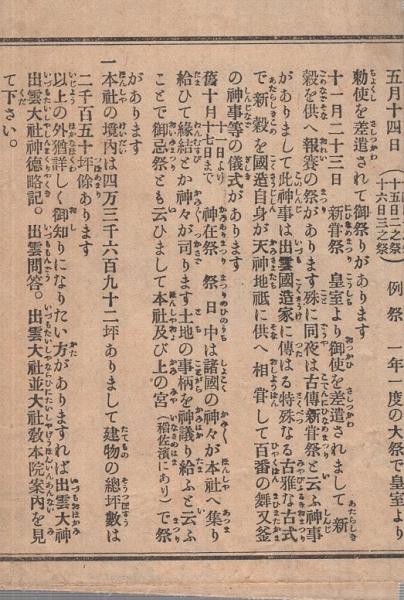 五月十四日（十五日二之祭 十六日三之祭）例祭 一年一度の大祭で皇室より
勅使を差遣されて御祭りがあります
十一月二十三日 新甞祭 皇室より御使を差遣されまして 新
穀を供へ報賽の祭があります殊に同夜は古傳新甞祭と云ふ神事
がありまして此神事は出雲國造家に傳はる特殊なる古雅な古式
で新穀を國造自身が天神地祗に供へ相甞して百番の舞又釜
の神事等の儀式があります
舊十月十一日より十七日まで 神在祭 祭日中は諸國の神々が本社へ集り
給ひて縁結とか神々が司ります土地の事柄を神議り給ふと云ふ
ことで御忌祭とも云ひまして本社及び上の宮（稲佐濱にあり）で祭
があります
一 本社の境内は四万三千六百九十二坪ありまして建物の總坪數は
二千百五十坪餘あります
以上の外猶詳しく御知りになりたい方がありますれば出雲大神
出雲大社神徳略記。出雲問答。出雲大社並大社教本院案内を見
て下さい。